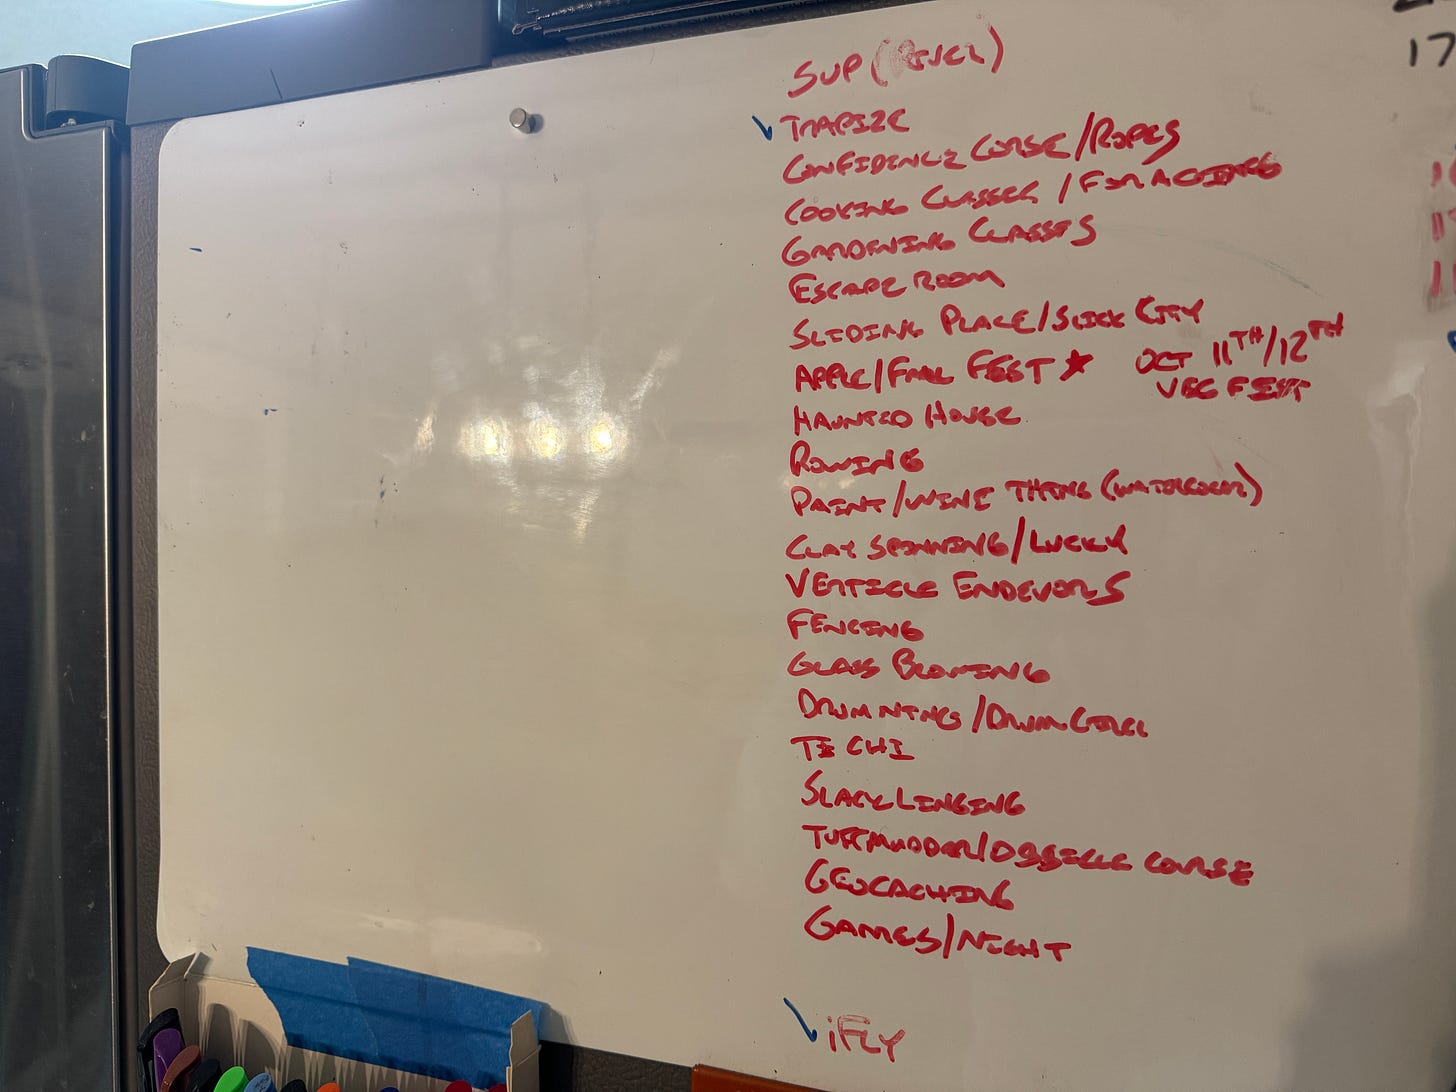 SUP (RIVER)
TRAPIZE
CONFIDENCE CORSE/ROPES
COOKING CLASSES / FORAGEING
GARDENING CLASSES
ESCAPE ROOM
SLIDING PLACE/SLICK CITY
APPLE/FALL FEST ★ OCT 11TH/12TH
VEG FEST
HAUNTED HOUSE
ROWING
PAINT/WINE THING (WATERCOLOR)
CLAY SPINNING/LUCKY
VERTICLE ENDEVORS
FENCING
GLASS BLOWING
DRUMMING/DRUM CIRCL
TI CHI
SLACKLINGING
TUFFMUDDER/OBSTICLE COURSE
GEOCACHING
GAMES/NIGHT
iFLY
17